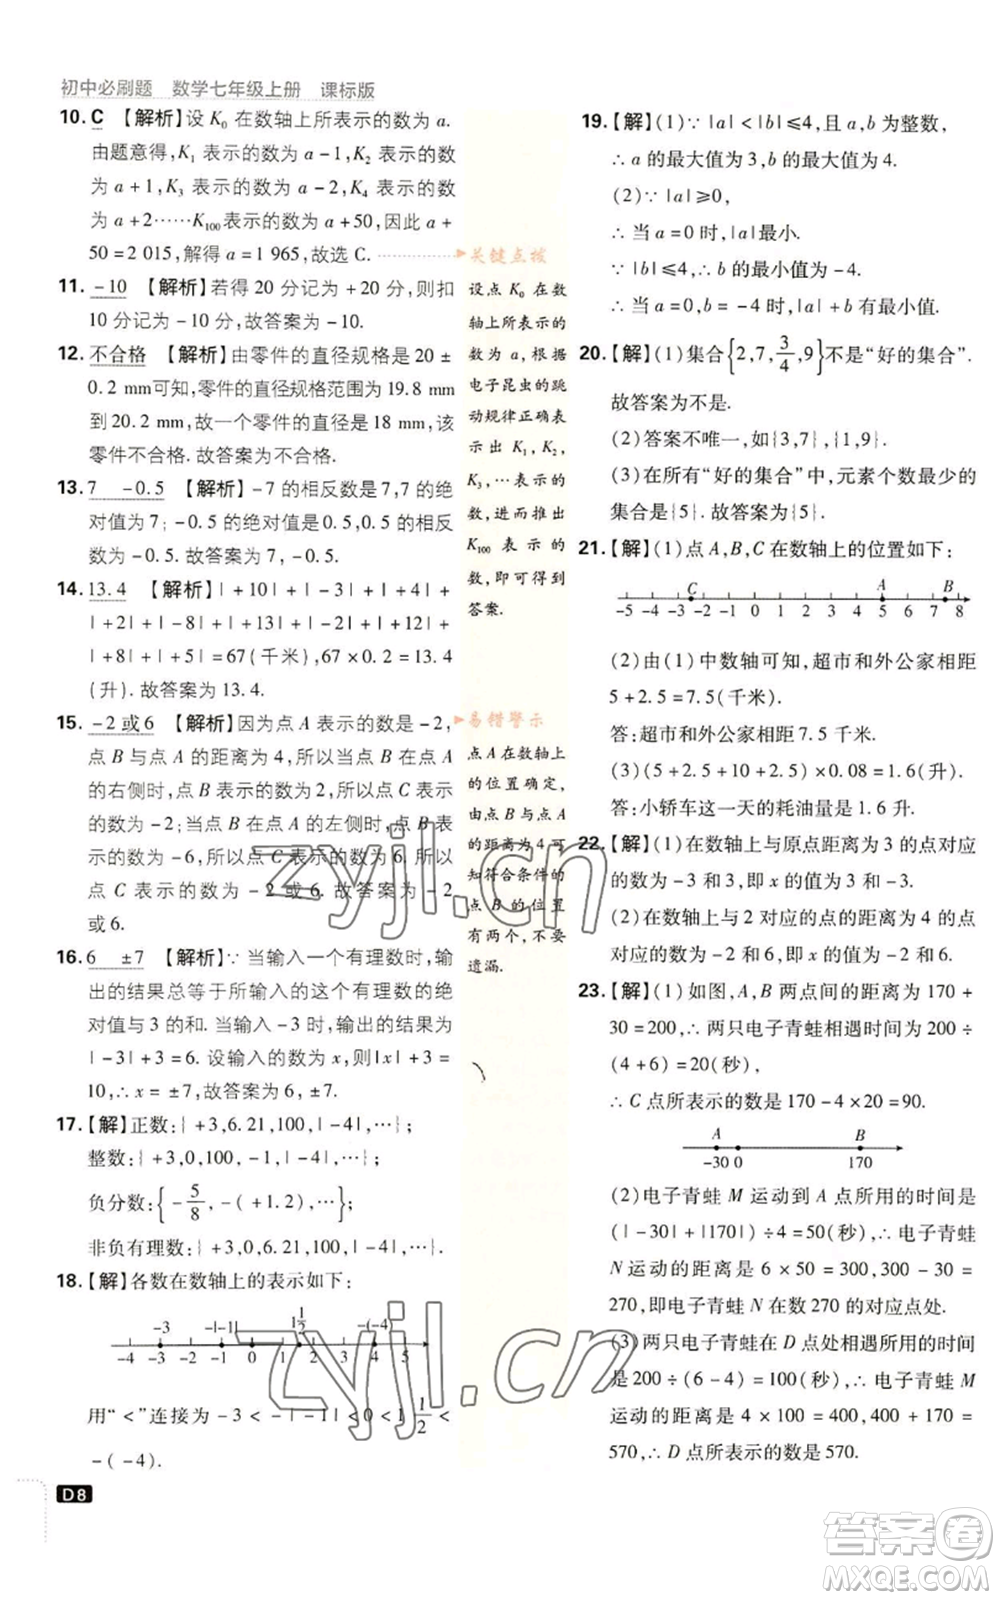 初中必刷题　数学七年级上册　课标版
10. C 【解析】设 K₀ 在数轴上所表示的数为 a.
由题意得,K₁ 表示的数为 a－1,K₂ 表示的数
为 a＋1,K₃ 表示的数为 a－2,K₄ 表示的数
为 a＋2……K₁₀₀表示的数为 a＋50,因此 a＋
50＝2 015,解得 a＝1 965,故选 C.
11. －10 【解析】若得 20 分记为 ＋20 分,则扣
10 分记为 －10 分,故答案为 －10.
12. 不合格 【解析】由零件的直径规格是 20 ±
0.2 mm可知,零件的直径规格范围为 19.8 mm
到 20.2 mm,故一个零件的直径是 18 mm,该
零件不合格. 故答案为不合格.
13. 7　－0.5 【解析】－7 的相反数是 7,7 的绝
对值为 7；－0.5 的绝对值是 0.5,0.5 的相反
数为 －0.5. 故答案为 7,－0.5.
14. 13.4 【解析】|＋10|＋|－3|＋|＋4|＋
|＋2|＋|－8|＋|＋13|＋|－2|＋|－11|＋
|＋8|＋|＋5|＝67(千米),67×0.2＝13.4
(升). 故答案为 13.4.
15. －2 或 6 【解析】因为点 A 表示的数是 －2,
点 B 与点 A 的距离为 4,所以当点 B 在点 A
的右侧时,点 B 表示的数为 2,所以点 C 表示的
数为 －2；当点 B 在点 A 的左侧时,点 B 表
示的数为 －6,所以点 C 表示的数为 6. 所以
点 C 表示的数是 －2 或 6. 故答案为 －2
或 6.
16. 6　±7 【解析】∵ 当输入一个有理数时,输
出的结果总等于所输入的这个有理数的绝
对值与 3 的和. 当输入 －3 时,输出的结果为
|－3|＋3＝6. 设输入的数为 x,则|x|＋3＝
10,∴ x＝±7. 故答案为 6,±7.
17. 【解】正数:{＋3,6.21,100,|－4|,…};
整数:{＋3,0,100,|－4|,…};
负分数:{－5/8,－(＋1.2),…};
非负有理数:{＋3,0,6.21,100,|－4|,…}.
18. 【解】各数在数轴上的表示如下:
－3　－|－1|　1½　－(－4)
－4 －3 －2 －1 0 1 2 3 4 5
用“＜”连接为 －3＜－|－1|＜0＜1½＜
－(－4).
D8
关键点拨
设点 K₀ 在数
轴上所表示的
数为 a,根据
电子昆虫的跳
动规律正确表
示出 K₁,K₂,
K₃,…表示的
数,进而推出
K₁₀₀ 表示的
数,即可得到
答案.
易错警示
点 A 在数轴上
的位置确定,
由点 B 与点 A
的距离为 4 可
知符合条件的
点 B 的位置
有两个,不要
遗漏.
19. 【解】(1)∵ |a|＜|b|≤4,且 a,b 为整数,
∴ a 的最大值为 3,b 的最大值为 4.
(2)∵ |a|≥0,
∴ 当 a＝0 时,|a|最小.
∵ |b|≤4,∴ b 的最小值为 －4.
∴ 当 a＝0,b＝－4 时,|a|＋b 有最小值.
20. 【解】(1)集合{2,7,3/4,9}不是“好的集合”.
故答案为不是.
(2)答案不唯一,如{3,7},{1,9}.
(3)在所有“好的集合”中,元素个数最少的
集合是{5}. 故答案为{5}.
21. 【解】(1)点 A,B,C 在数轴上的位置如下:
C　A　B
－5 －4 －3 －2 －1 0 1 2 3 4 5 6 7 8
(2)由(1)中数轴可知,超市和外公家相距
5＋2.5＝7.5(千米).
答:超市和外公家相距 7.5 千米.
(3)(5＋2.5＋10＋2.5)×0.08＝1.6(升).
答:小轿车这一天的耗油量是 1.6 升.
22. 【解】(1)在数轴上与原点距离为 3 的点对应
的数为 －3 和 3,即 x 的值为 －3 和 3.
(2)在数轴上与 2 对应的点的距离为 4 的点
对应的数为 －2 和 6,即 x 的值为 －2 和 6.
23. 【解】(1)如图,A,B 两点间的距离为 170＋
30＝200,∴ 两只电子青蛙相遇时间为 200÷
(4＋6)＝20(秒),
∴ C 点所表示的数是 170－4×20＝90.
A　B
－30 0　170
(2)电子青蛙 M 运动到 A 点所用的时间是
(|－30|＋|170|)÷4＝50(秒),∴ 电子青蛙
N 运动的距离为 6×50＝300,300－30＝
270,即电子青蛙 N 在数 270 的对应点处.
(3)两只电子青蛙在 D 点处相遇所用的时间
是 200÷(6－4)＝100(秒),电子青蛙 M
运动的距离是 4×100＝400,400＋170＝
570,∴ D 点所表示的数是 570.
zyjl.cn
zyjl.cn
答案圈
MXQE.COM